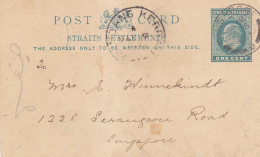 POST CARD
STRAITS SETTLEMENTS
THE ADDRESS ONLY TO BE WRITTEN ON THIS SIDE.
ONE CENT
Mrs E. Winnekindt
1228 Serangoon Road
Singapore